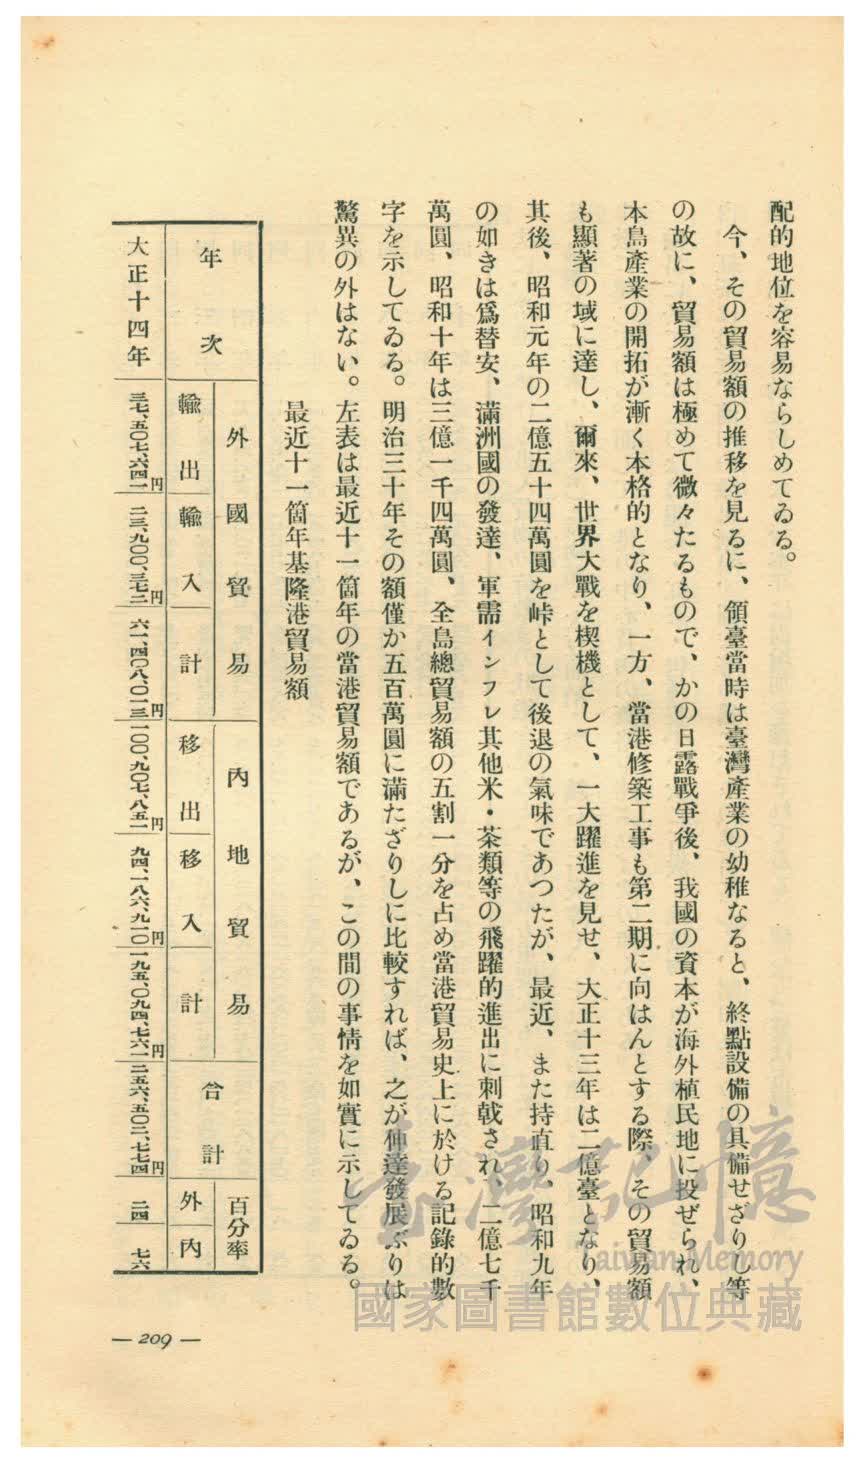 配的地位を容易ならしめてゐる。
今、その貿易額の推移を見るに、領臺當時は臺灣產業の幼稚なると、終點設備の具備せざりし等
の故に、貿易額は極めて微々たるもので、かの日露戰爭後、我國の資本が海外植民地に投ぜられ、
本島產業の開拓が漸く本格的となり、一方、當港修築工事も第二期に向はんとする際、その貿易額
も顯著の域に達し、爾來、世界大戰を楔機として、一大躍進を見せ、大正十三年は二億臺となり、
其後、昭和元年の二億五十四萬圓を峠として後退の氣味であつたが、最近、また持直り、昭和九年
の如きは爲替安、滿洲國の發達、軍需インフレ其他米・茶類等の飛躍的進出に刺戟され、二億七千
萬圓、昭和十年は三億一千四萬圓、全島總貿易額の五割一分を占め當港貿易史上に於ける記錄的數
字を示してゐる。明治三十年その額僅か五百萬圓に滿たざりしに比較すれば、之が伸達發展ぶりは
驚異の外はない。左表は最近十一箇年の當港貿易額であるが、この間の事情を如實に示してゐる。
最近十一箇年基隆港貿易額
年次
外國貿易
內地貿易
合計
百分率
輸出
輸入
計
移出
移入
計
外
內
大正十四年
三七、五〇七、六四一円
二三、九〇〇、三七二円
六一、四〇八、〇一三円
一〇〇、九〇七、八五一円
九四、一八六、九一〇円
一九五、〇九四、七六一円
二五六、五〇二、七七四円
二四
七六
— 209 —
臺灣記憶
Taiwan Memory
國家圖書館數位典藏